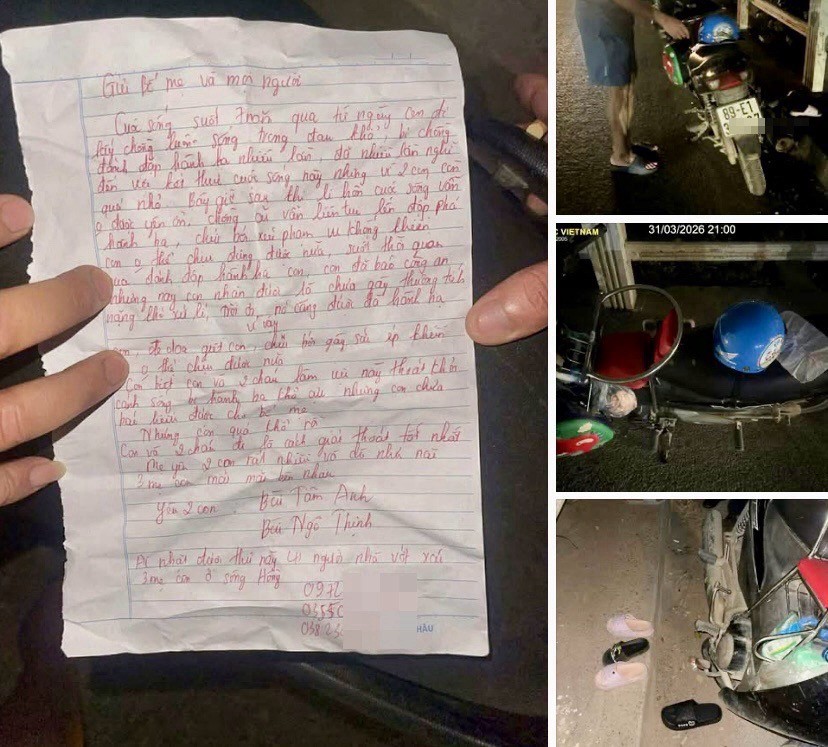 Gửi Bố mẹ và mọi người
Cuộc sống suốt 7 năm qua từ ngày con đi
lấy chồng luôn sống trong đau khổ bị chồng
đánh đập hành hạ nhiều lần, đã nhiều lần nghĩ
đến việc kết thúc cuộc sống này nhưng vì 2 con còn
quá nhỏ. Bây giờ sau khi li hôn cuộc sống vẫn
o được yên ổn, chồng cũ vẫn liên tục đập phá
hành hạ, chửi bới xúc phạm vu khống khiến
con o thể chịu đựng được nữa, suốt thời gian
qua đánh đập hành hạ con, con đã báo công an
nhưng nay con nhận được là chưa gây thương tích
nặng khó xử lí, Trời ơi, nó càng được đà hành hạ
vì vậy
con, đe dọa giết con, chửi bới gây sức ép khiến
o thể chịu được nữa
Con biết con và 2 cháu làm việc này thoát khỏi
cảnh sống bị hành hạ khổ ải nhưng con chưa
báo hiếu được cho bố mẹ
Nhưng con quá khổ rồi
Con và 2 cháu đi là cách giải thoát tốt nhất
Mẹ yêu 2 con rất nhiều và dù như nào
3 mẹ con mãi mãi bên nhau
Yêu 2 con. Bùi Tâm Anh
Bùi Ngô Thịnh
Ai nhặt được thư này gọi người nhà vớt xác
3 mẹ con ở sông Hồng
097
035
038 23
HẢU
89-E1
3
VIETNAM
31/03/2026 21:00